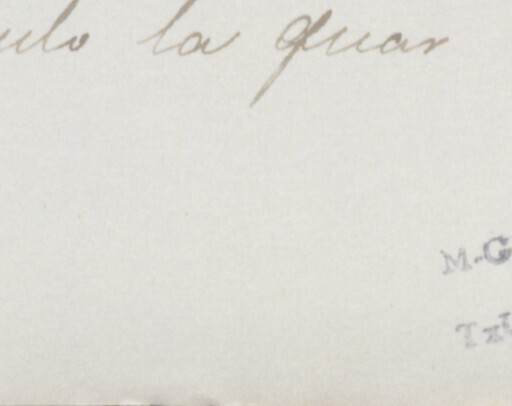 ulo la quar
M.G